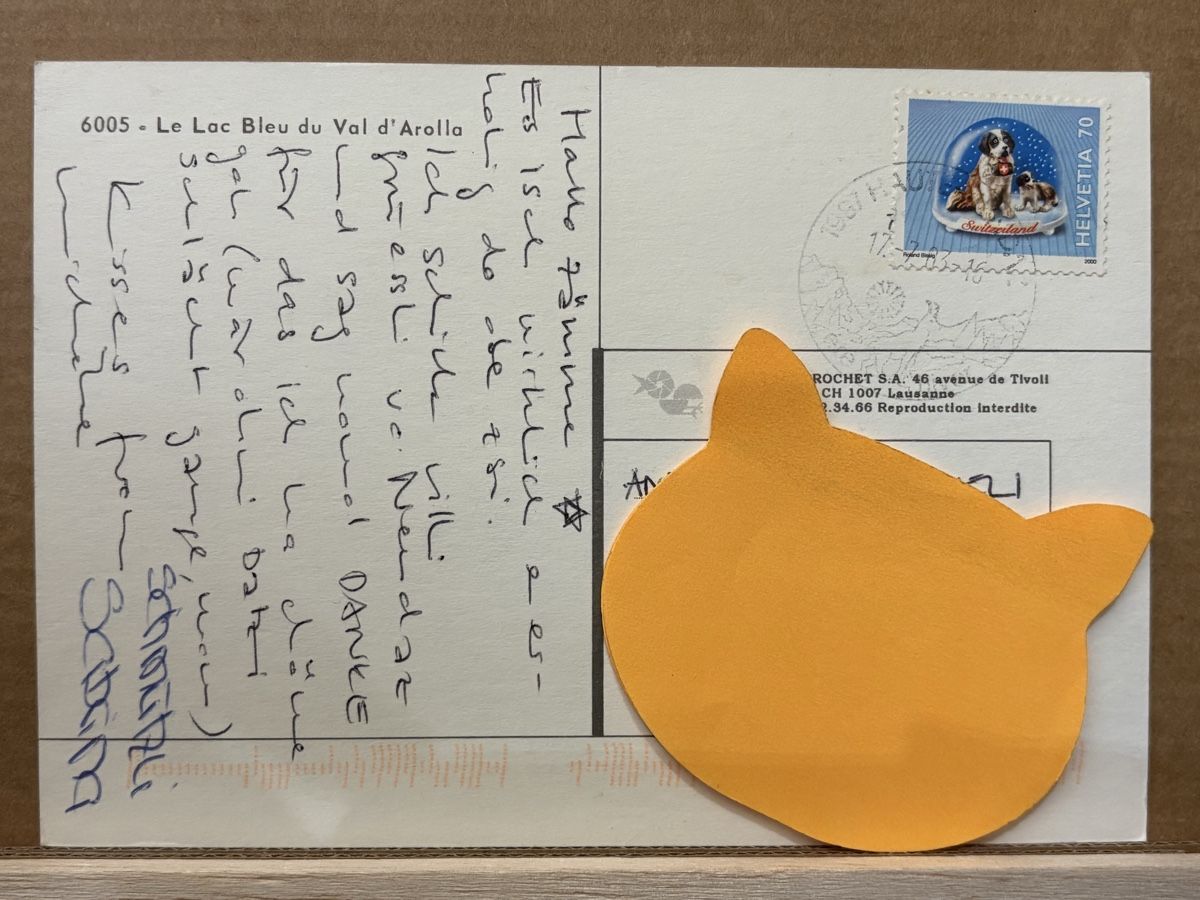 6005 - Le Lac Bleu du Val d'Arolla
Hallo zämme
Es isch wirklich e er-
holig do obe z si.
Ich schicke villi
grüessli vo Nendaz
und sag nomol DANKE
für das ich ha chöne
goh (wär dini Batzi
schlächt gange, won)
Kisses from
michèle
Schmützli
Sabina
HELVETIA 70
Switzerland
Roland Bissig
2000
1997 HAUT
17-2-03-16
ROCHET S.A. 46 avenue de Tivoli
CH 1007 Lausanne
2.34.66 Reproduction interdite